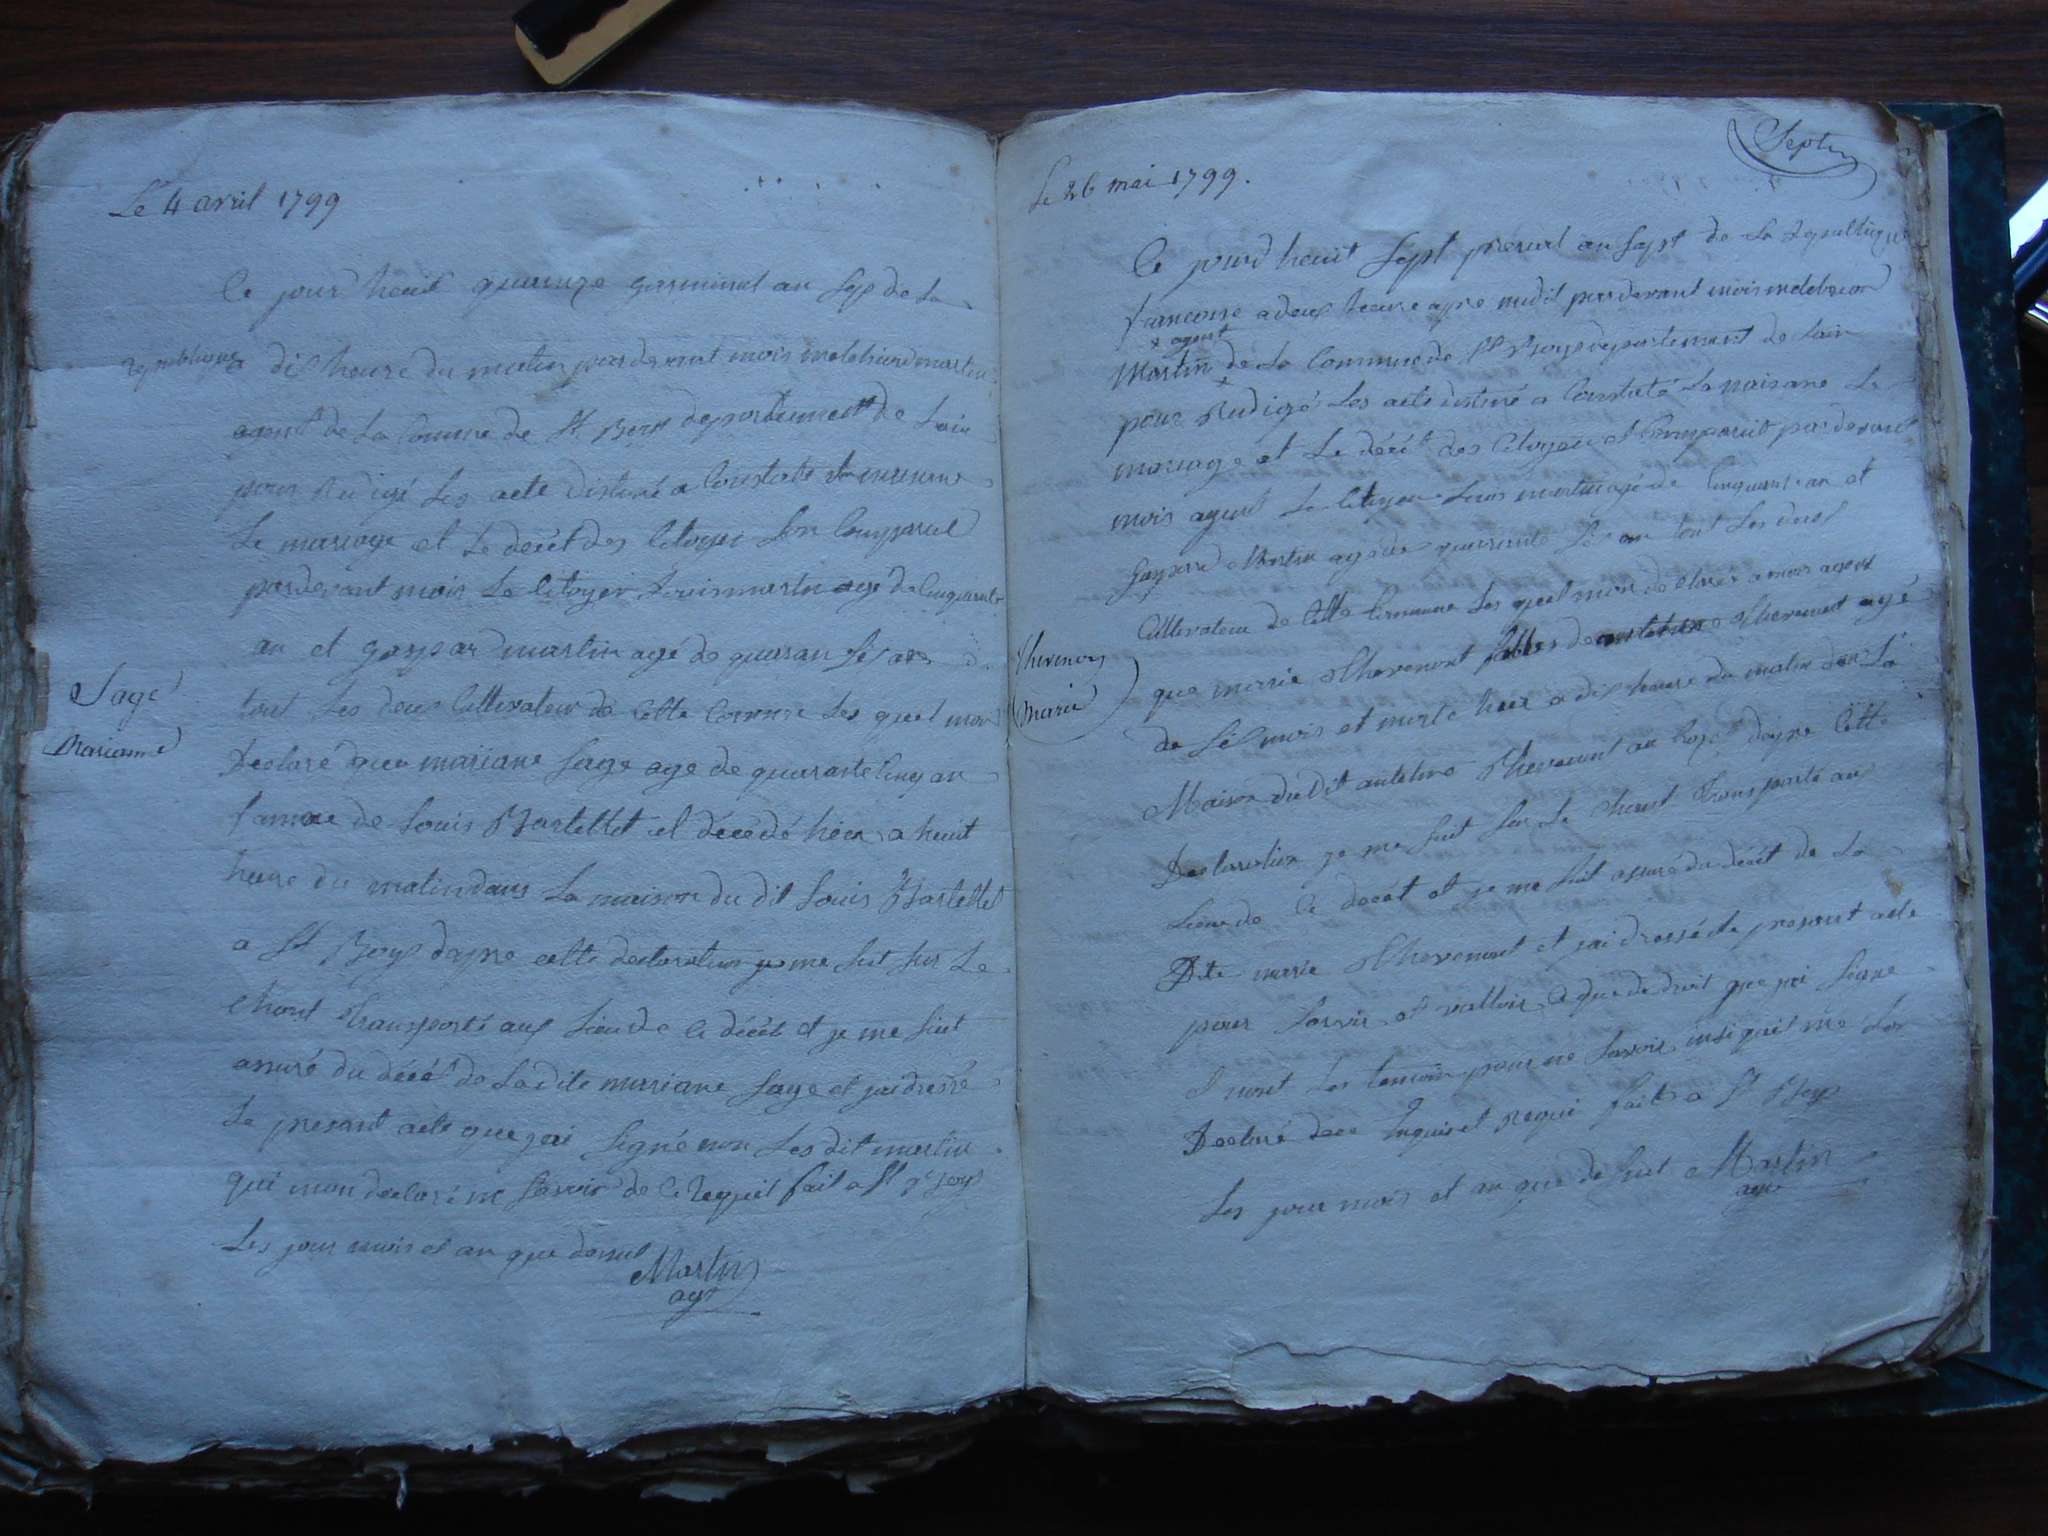 Le 4 avril 1799
Ce jour heuit quainze germinal an sept de la
republique a dis heure du matin pardevant mois melchieur martin
agent de la Comune de St Boys departement de Lain
pour redigé les acte distiné a Constaté
Le mariage et Le décét des Citoyen son Comparut
pardevant mois Le Citoyen Louis martin agé de Cinquante
an et gaspard martin agé de quaran sis ans
tout les deus Cultivateur de Cette Commune Les quel mon
Sage
Marianne
Declaré que mariane Sage age de quarante Cinq an
famme de Louis Bartellet et décédé hier a heuit
heure du matin dans La maison du dit Louis Bartellet
a St Boys dapre cette declaration je me suit sur Le
Chant transporté aux Lieu de Ce décét et je me suit
assuré du décét de La dite mariane Sage et jai dressé
Le present acte que jai signé non Les dit martin
qui mon declaré ne savoir de Ce Requit fait a St Boys
Les jour mois et an que dessut
Martin
agt
Septm
Le 26 mai 1799.
Ce jourd heuit Sept prerial an Sept de La republique
francoise a deux heure apre midit pardevant mois melchieur
+ agent
Martin + de La Commune de St Boys departement de Lain
pour Redigé Les acte distiné a Constaté La naisance Le
mariage et Le décét des Citoyen et Comparuit pardevant
mois agent Le Citoyen Louis martin agé de Cinquante an et
gaspard Martin agé de quarante sis an tout Les deus
Cultivateur de Cette Commune Les quel mon declaré a mois agent
Thevenon
Marie
que marie Thevenont filles de antelme Thevenont agé
de sis mois et morte hier a dis heure du matin dans La
Maison du dit antelme Thevenont au dapre Cette
Declaration je me suit sur Le Chant Transporté au
Lieu de Ce decét et je me suit assuré du décét de La
Dite marie Thevenont et jai dressé Le present acte
pour servir et valloir a que de droit que jai signé
E nont Les temoin pour ne savoir insi quil me Lon
Declaré dece Enquis et Requi fait a St Boys
Les jour mois et an que de sut Martin
agt